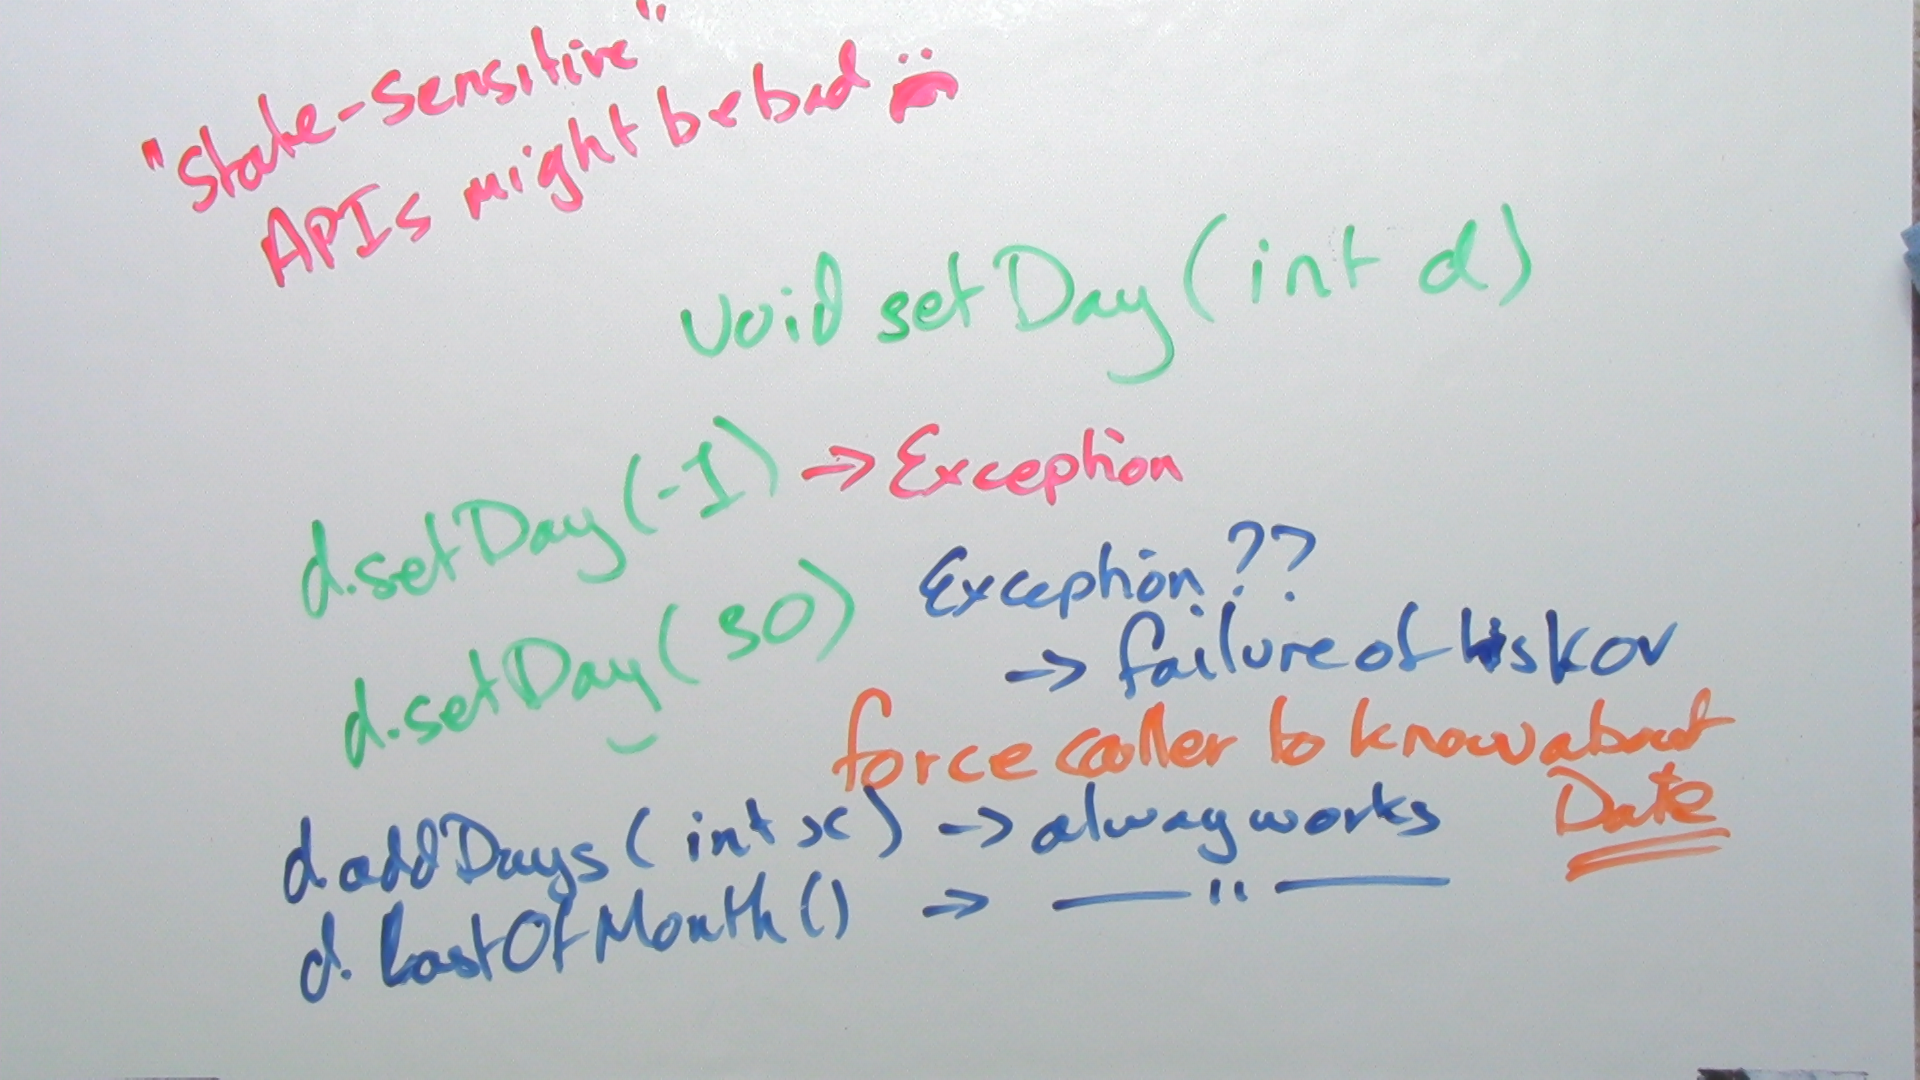 "State-Sensitive"
APIs might be bad
void setDay(int d)
d.setDay(-1) → Exception
d.setDay(30) Exception??
→ failure of Liskov
force caller to know about
Date
d.addDays(int x) → alway works
d.LastOfMonth() → — " —